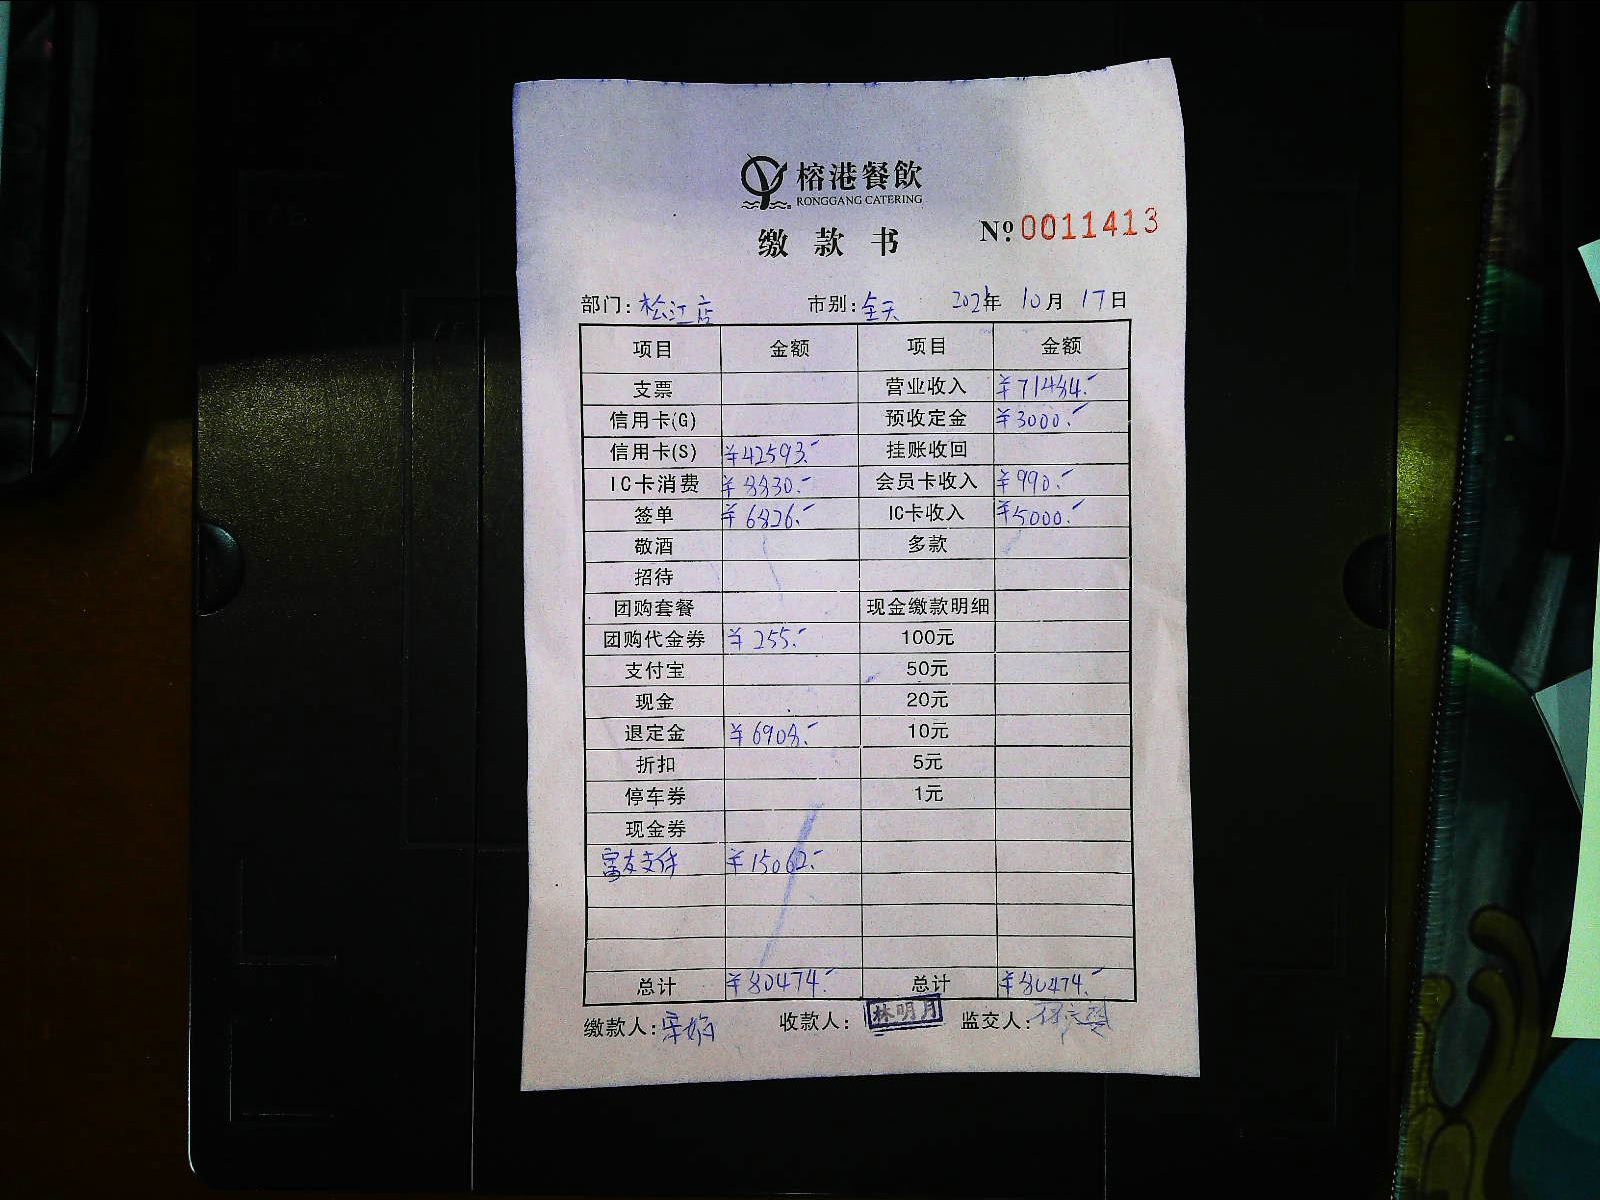 榕港餐飲
RONGGANG CATERING
缴款书
№ 0011413
部门: 松江店 市别: 全天 2021年 10月 17日
项目 金额 项目 金额
支票 营业收入 ¥71484.-
信用卡(G) 预收定金 ¥3000.-
信用卡(S) ¥42593.- 挂账收回
IC卡消费 ¥8830.- 会员卡收入 ¥990.-
签单 ¥6826.- IC卡收入 ¥5000.-
敬酒 多款
招待
团购套餐 现金缴款明细
团购代金券 ¥255.- 100元
支付宝 50元
现金 20元
退定金 ¥6908.- 10元
折扣 5元
停车券 1元
现金券
富友支付 ¥15062.-
总计 ¥80474.- 总计 ¥80474.-
缴款人: 收款人: 林明月 监交人: